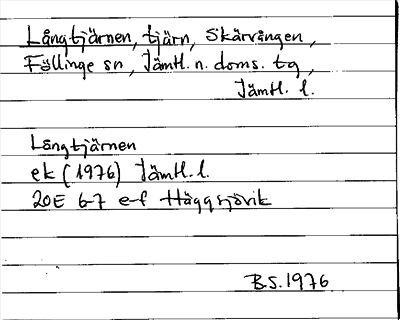 Långtjärnen, tjärn, Skärvången,
Föllinge sn, Jämtl. n. doms. tg,
Jämtl. l.
Långtjärnen
ek (1976) Jämtl. l.
20E 6-7 e-f Häggsjövik
B.S. 1976